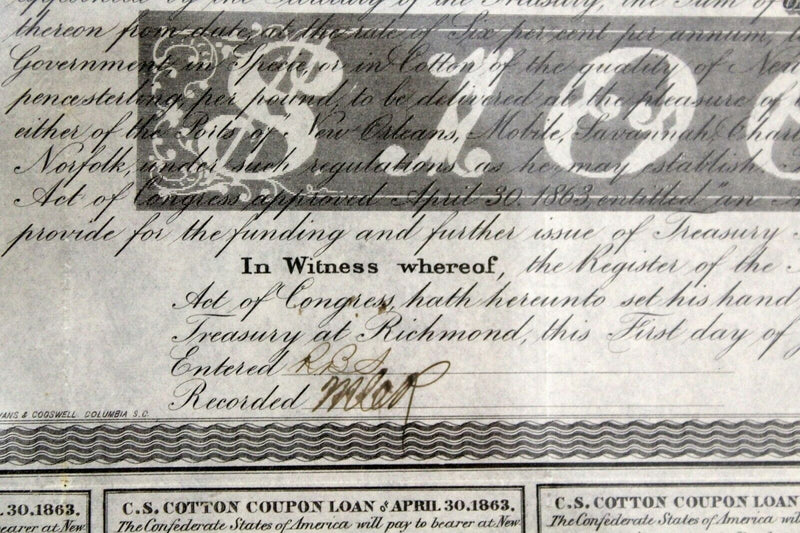 approved by the Secretary of the Treasury, the Sum of
thereon from date, at the rate of Six per cent per annum,
Government in Specie, or in Cotton of the quality of New
pence sterling per pound, to be delivered at the pleasure of
either of the Ports of New Orleans, Mobile, Savannah, Charl
Norfolk, under such regulations as he may establish
Act of Congress approved April 30, 1863, entitled "an
provide for the funding and further issue of Treasury
$100
In Witness whereof, the Register of the
Act of Congress, hath hereunto set his hand
Treasury at Richmond, this First day of
Entered
Recorded
VANS & COGSWELL COLUMBIA S.C.
L 30.1863. C.S. COTTON COUPON LOAN of APRIL 30.1863. C.S. COTTON COUPON LOAN
earer at New The Confederate States of America will pay to bearer at New The Confederate States of America wil